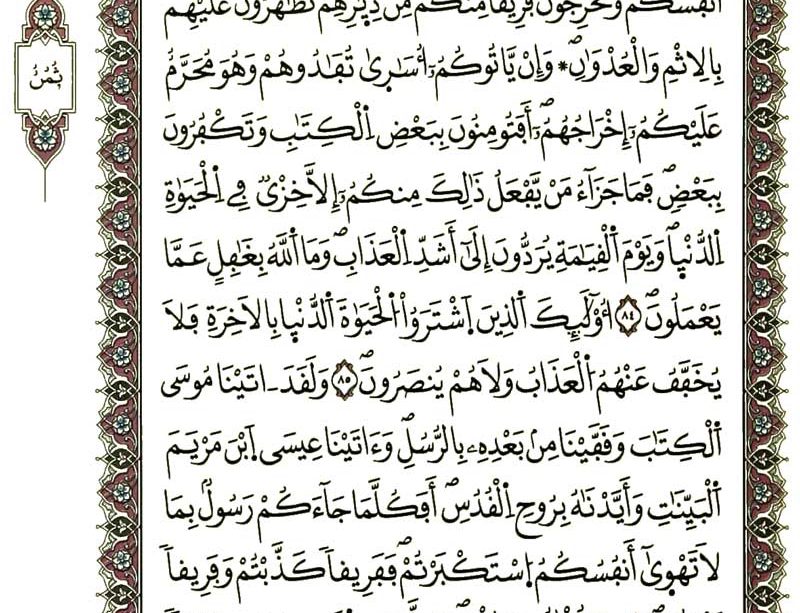 أَنفُسَكُمْ وَتُخْرِجُونَ فَرِيقاً مِّنكُم مِّن دِيٰرِهِمْ تَظَّهَرُونَ عَلَيْهِم
ثُمُنُ
بِالِاثْمِ وَالْعُدْوَٰنِ * وَإِنْ يَّاتُوكُمُۥٓ أُسَٰرىٰ تُفَٰدُوهُمْ وَهْوَ مُحَرَّمٌ
عَلَيْكُمُۥٓ إِخْرَاجُهُمُۥٓ أَفَتُومِنُونَ بِبَعْضِ اِلْكِتَٰبِ وَتَكْفُرُونَ
بِبَعْضٍ فَمَا جَزَآءُ مَنْ يَّفْعَلُ ذَٰلِكَ مِنكُمُۥٓ إِلَّا خِزْيٌ فِي اِلْحَيَوٰةِ
اِلدُّنْيٰا وَيَوْمَ اَلْقِيَٰمَةِ يُرَدُّونَ إِلَىٰٓ أَشَدِّ اِلْعَذَابِ وَمَا اَللَّهُ بِغَٰفِلٍ عَمَّا
يَعْمَلُونَ ٨٤ أُوْلَٰٓئِكَ اَلذِينَ اَشْتَرَوُاْ اُلْحَيَوٰةَ اَلدُّنْيٰا بِالَاخِرَةِ فَلَا
يُخَفَّفُ عَنْهُمُ اُلْعَذَابُ وَلَا هُمْ يُنصَرُونَ ٨٥ وَلَقَدَ اٰتَيْنَا مُوسَى
اَلْكِتَٰبَ وَقَفَّيْنَا مِنۢ بَعْدِهِۦ بِالرُّسُلِ وَءَاتَيْنَا عِيسَى اَبْنَ مَرْيَمَ
اَلْبَيِّنَٰتِ وَأَيَّدْنَٰهُ بِرُوحِ اِلْقُدُسِ أَفَكُلَّمَا جَآءَكُمْ رَسُولٌۢ بِمَا
لَا تَهْوَىٰٓ أَنفُسُكُمُ اُسْتَكْبَرْتُمْ فَفَرِيقاً كَذَّبْتُمْ وَفَرِيقاً